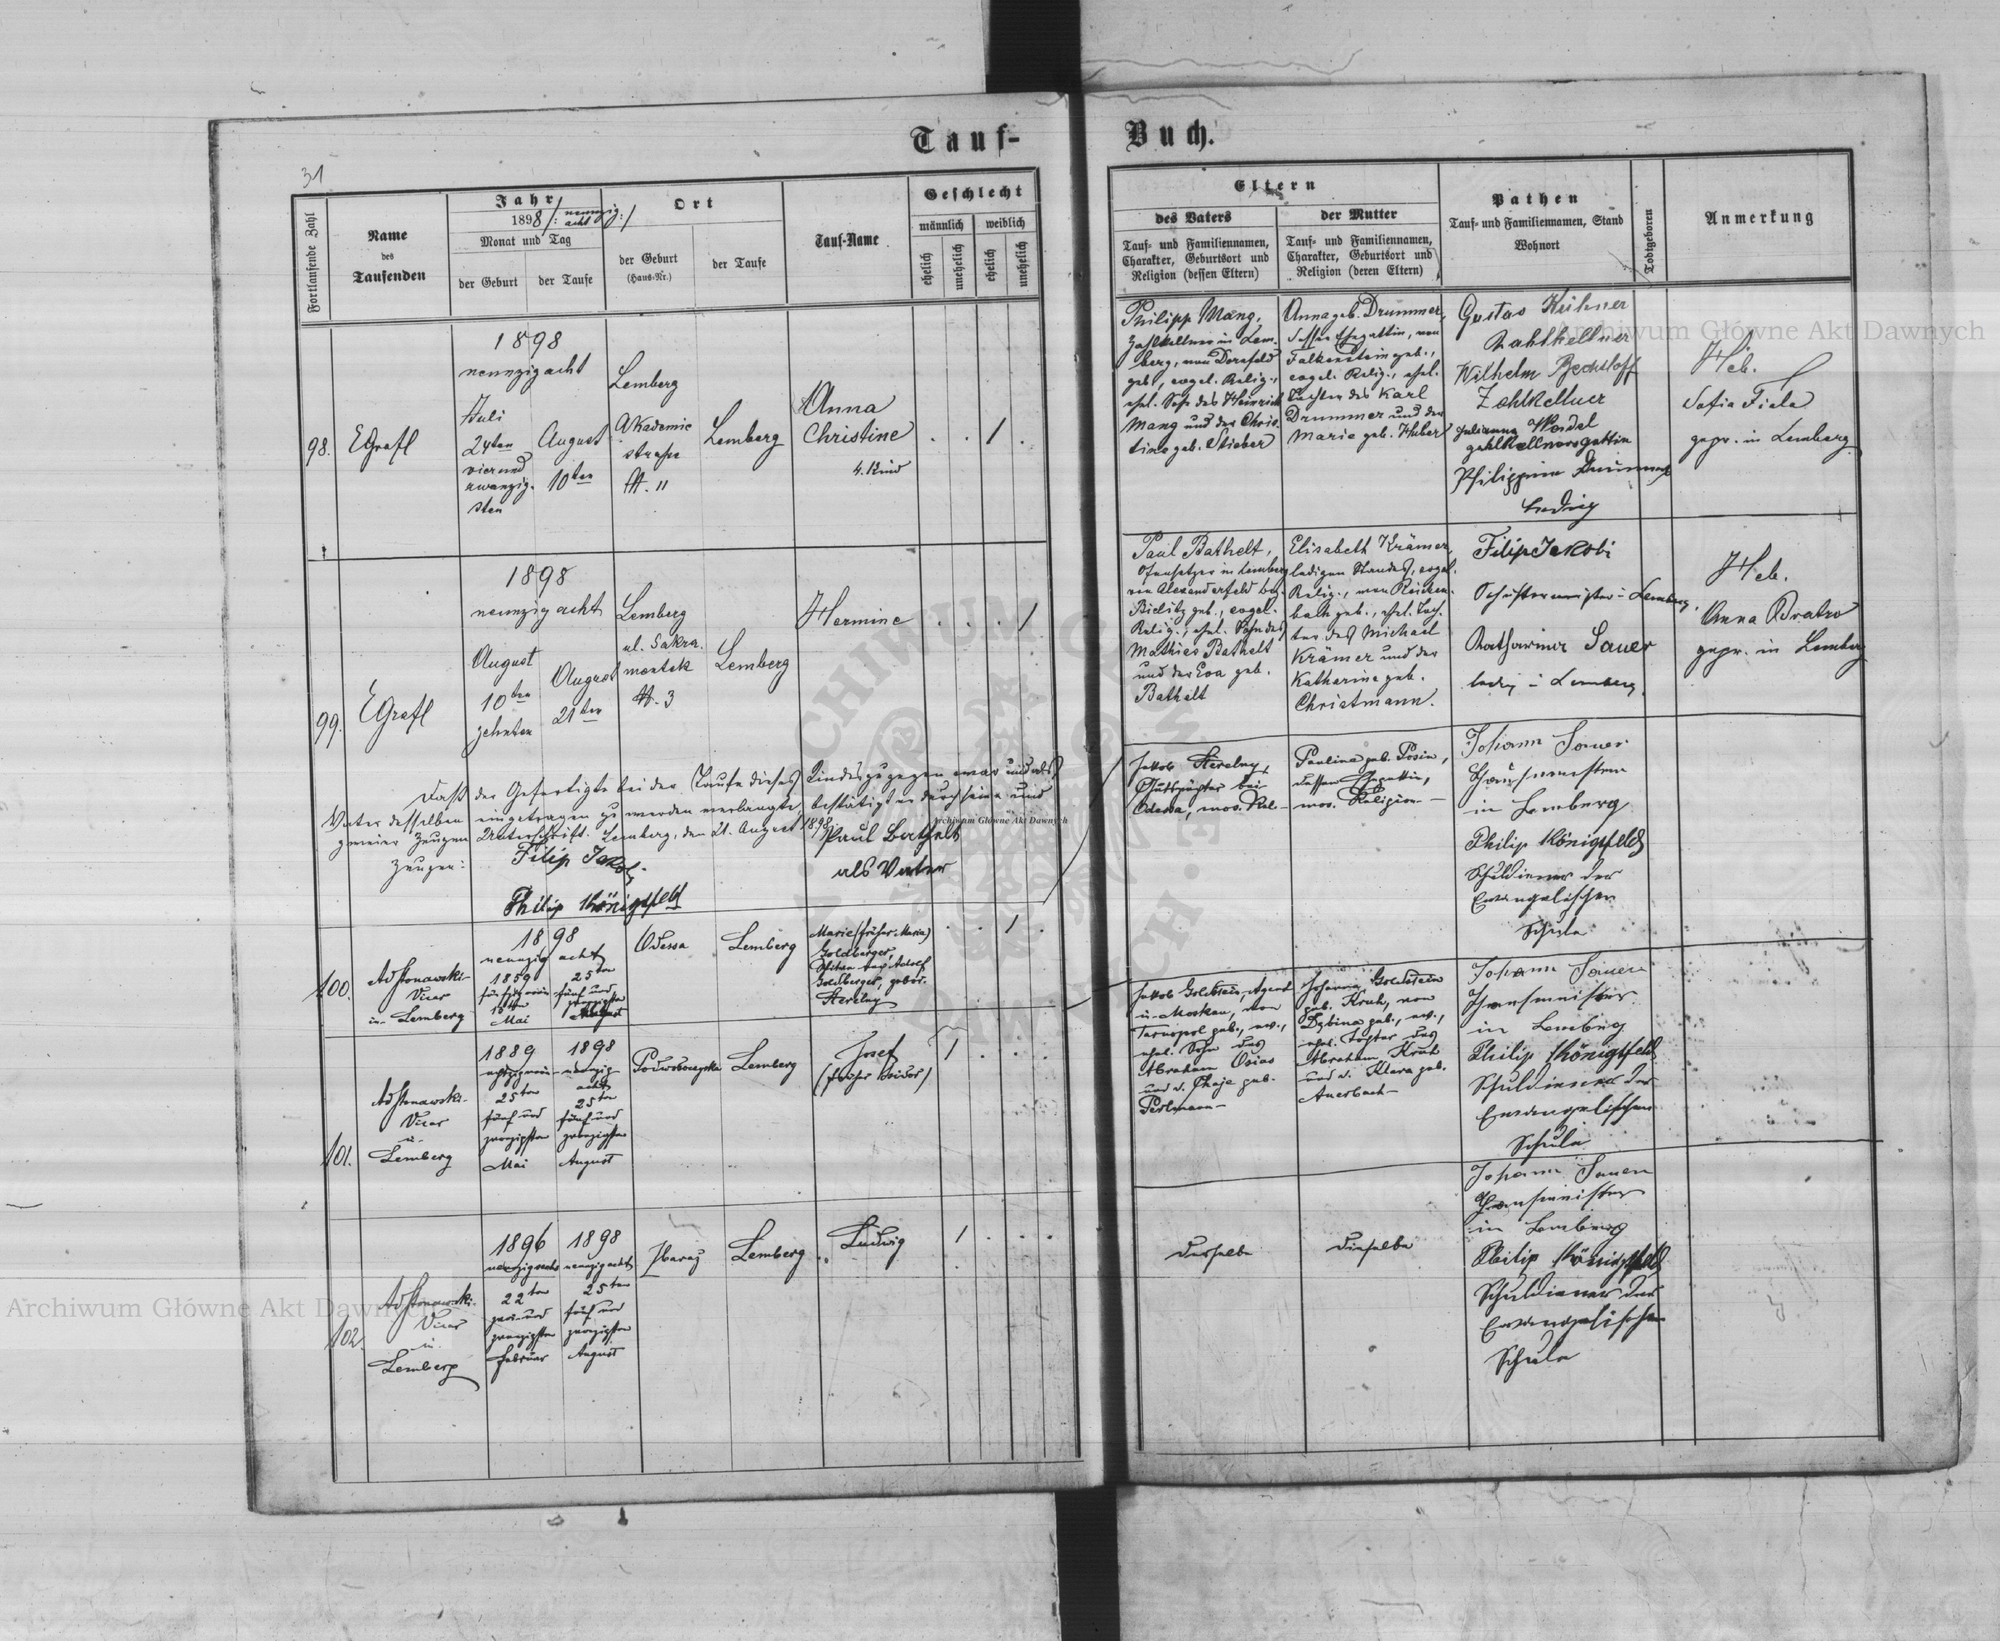 Tauf-
Buch.
31
Fortlaufende Zahl
Name
des
Taufenden
Jahr
1898 /: neunzig acht :/
Monat und Tag
der Geburt
der Taufe
Ort
der Geburt
(Haus-Nr.)
der Taufe
Tauf-Name
Geschlecht
männlich
weiblich
ehelich
unehelich
ehelich
unehelich
Eltern
des Vaters
Tauf- und Familiennamen,
Charakter, Geburtsort und
Religion (dessen Eltern)
der Mutter
Tauf- und Familiennamen,
Charakter, Geburtsort und
Religion (deren Eltern)
Pathen
Tauf- und Familiennamen, Stand
Wohnort
Todtgeboren
Anmerkung
98.
EGrafl
1898
neunzig acht
Juli
24ten
vier und
zwanzig-
sten
August
10ten
Lemberg
Akademie
strasse
N. 11
Lemberg
Anna
Christine
4. Kind
1
Philipp Mang,
Zahlkellner in Lem-
berg, von Dornfeld
geb., evgel. Relig.,
ehel. Sohn des Heinrich
Mang und der Chris-
tine geb. Stieber
Anna geb. Drummer,
dessen Ehegattin, von
Falkenstein geb.,
evgel. Relig., ehel.
Tochter des Karl
Drummer und der
Marie geb. Huber
Gustav Kühner
Zahlkellner
Wilhelm Bechtloff
Zahlkellner
Julianna Wendel
Zahlkellnersgattin
Philippina Drummer
ledig
Heb.
Sofia Fiala
gepr. in Lemberg
99.
EGrafl
1898
neunzig acht
August
10ten
zehnten
August
21ten
Lemberg
ul. Sakra-
mentek
N. 3
Lemberg
Hermine
1
Paul Bathelt,
Ofensetzer in Lemberg
von Alexanderfeld bei
Bielitz geb., evgel.
Relig., ehel. Sohn des
Mathias Bathelt
und der Eva geb.
Bathelt
Elisabeth Krämer,
ledigen Standes, evgel.
Relig., von Reichen-
bach geb., ehel. Toch-
ter des Michael
Krämer und der
Katharina geb.
Christmann.
Filip Jakobi
Schustermeister in Lemberg,
Katharina Sauer
ledig in Lemberg.
Heb.
Anna Bratro
gepr. in Lemberg
Daß der Gefertigte bei der Taufe dieses Kindes zugegen war und als
Vater desselben eingetragen zu werden verlangte, bestätigt er durch seine und
zweier Zeugen Unterschrift. Lemberg, den 21. August 1898.
Zeugen:
Filip Jakobi
Philip Königsfeld
Paul Bathelt
als Vater
100.
Adf
Vicar
in Lemberg
1898
neunzig acht
1859
fünfzig neun
Mai
25ten
fünf und
zwanzigsten
August
Odessa
Lemberg
Marie (früher: Maria)
Goldberger,
Witwe nach Adolf
Goldberger, gebor.
1
Jakob
Gutspächter bei
Odessa, mos. Rel-
Paulina geb. Posin,
dessen Ehegattin,
mos. Religion-
Johann Sauer
Hausmeister
in Lemberg
Philip Königsfeld
Schuldiener der
Evangelischen
Schule
101.
Vicar
in
Lemberg
1889
achtzig neun
25ten
fünf und
zwanzigsten
Mai
1898
neunzig
acht
25ten
fünf und
zwanzigsten
August
Podwoloczyska
Lemberg
Josef
(früher Leibor)
1
Jakob Goldstein, Agent
in Moskau, von
Tarnopol geb.,
ehel. Sohn des
Abraham Osias
und d. Chaje geb.
Perlmann-
Johanna Goldstein
geb. Kruh, von
geb.,
ehel. Tochter des
Abraham Kruh
und d. Klara geb.
Auerbach-
Johann Sauer
Hausmeister
in Lemberg
Philip Königsfeld
Schuldiener der
Evangelischen
Schule
102.
Vicar
in
Lemberg
1896
neunzig sechs
22ten
zwei und
zwanzigsten
Februar
1898
neunzig acht
25ten
fünf und
zwanzigsten
August
Zbaraz
Lemberg
Ludwig
1
derselbe
dieselbe
Johann Sauer
Hausmeister
in Lemberg
Philip Königsfeld
Schuldiener der
Evangelischen
Schule
Archiwum Główne Akt Dawnych
Archiwum Główne Akt Dawnych
Archiwum Główne Akt Dawnych